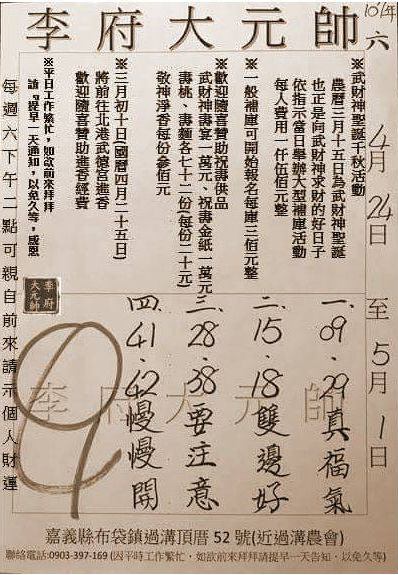 李府大元帥
106年
六
4月24日至5月1日
※武財神聖誕千秋活動
農歷三月十五日為武財神聖誕
也正是向武財神求財的好日子
依指示當日舉辦大型補庫活動
每人費用一仟伍佰元整
※一般補庫可開始報名每庫三佰元整
※歡迎隨喜贊助祝壽供品
武財神壽宴一萬元、祝壽金紙一萬元
壽桃、壽麵各七十二份(每份二十元)
敬神淨香每份參佰元
※三月初十日(國曆四月二十五日)
將前往北港武德宮進香
歡迎隨喜贊助進香經費
※平日工作繁忙，如欲前來拜拜
請『提早一天通知，以免久等，感恩
每週六下午二點可親自前來請示個人財運
李府大元帥
李府大元帥
一、09.29真福氣
二、15.18雙邊好
三、28.38要注意
四、41.42慢慢開
9
嘉義縣布袋鎮過溝頂厝52號(近過溝農會)
聯絡電話:0903-397-169(因平時工作繁忙，如欲前來拜拜請提早一天告知，以免久等)